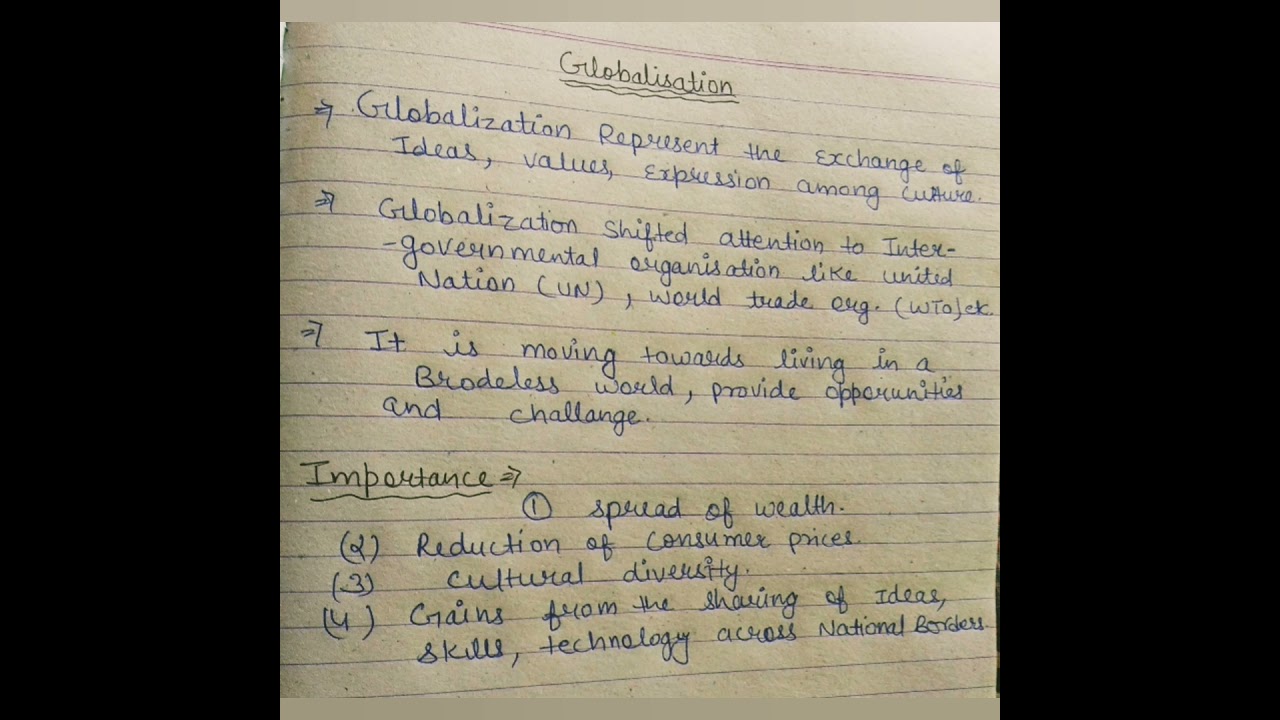 Globalisation
⇒ Globalization Represent the Exchange of
Ideas, values, Expression among culture.
⇒ Globalization shifted attention to Inter-
-governmental organisation like united
Nation (UN), world trade org. (WTO) etc.
⇒ It is moving towards living in a
Brodeless world, provide opporunities
and challange.
Importance ⇒
① spread of wealth.
(2) Reduction of consumer prices.
(3) cultural diversity.
(4) Gains from the sharing of Ideas,
skills, technology across National Borders